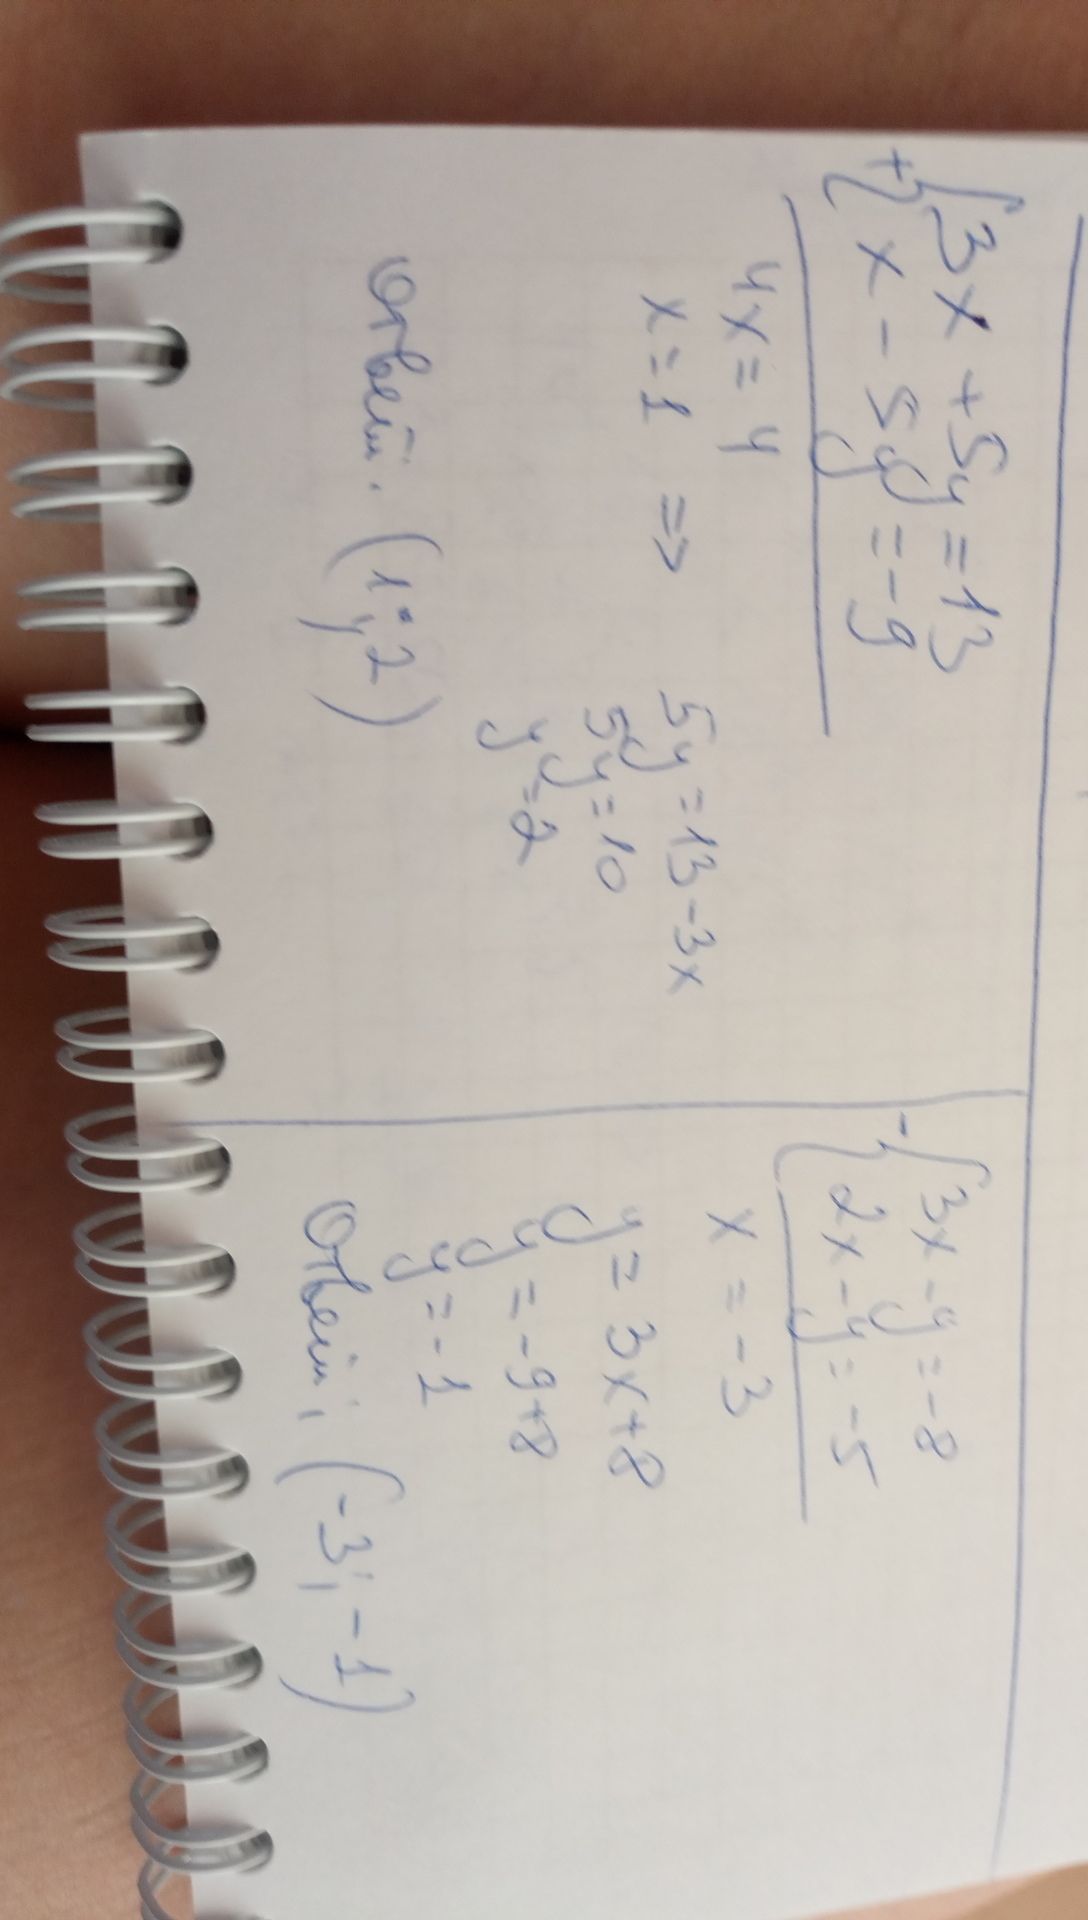 + { 3x + 5y = 13
x - 5y = -9
4x = 4
x = 1 =>
5y = 13 - 3x
5y = 10
y = 2
Ответ. (1; 2)
- { 3x - y = -8
2x - y = -5
x = -3
y = 3x + 8
y = -9 + 8
y = -1
Ответ: (-3; -1)